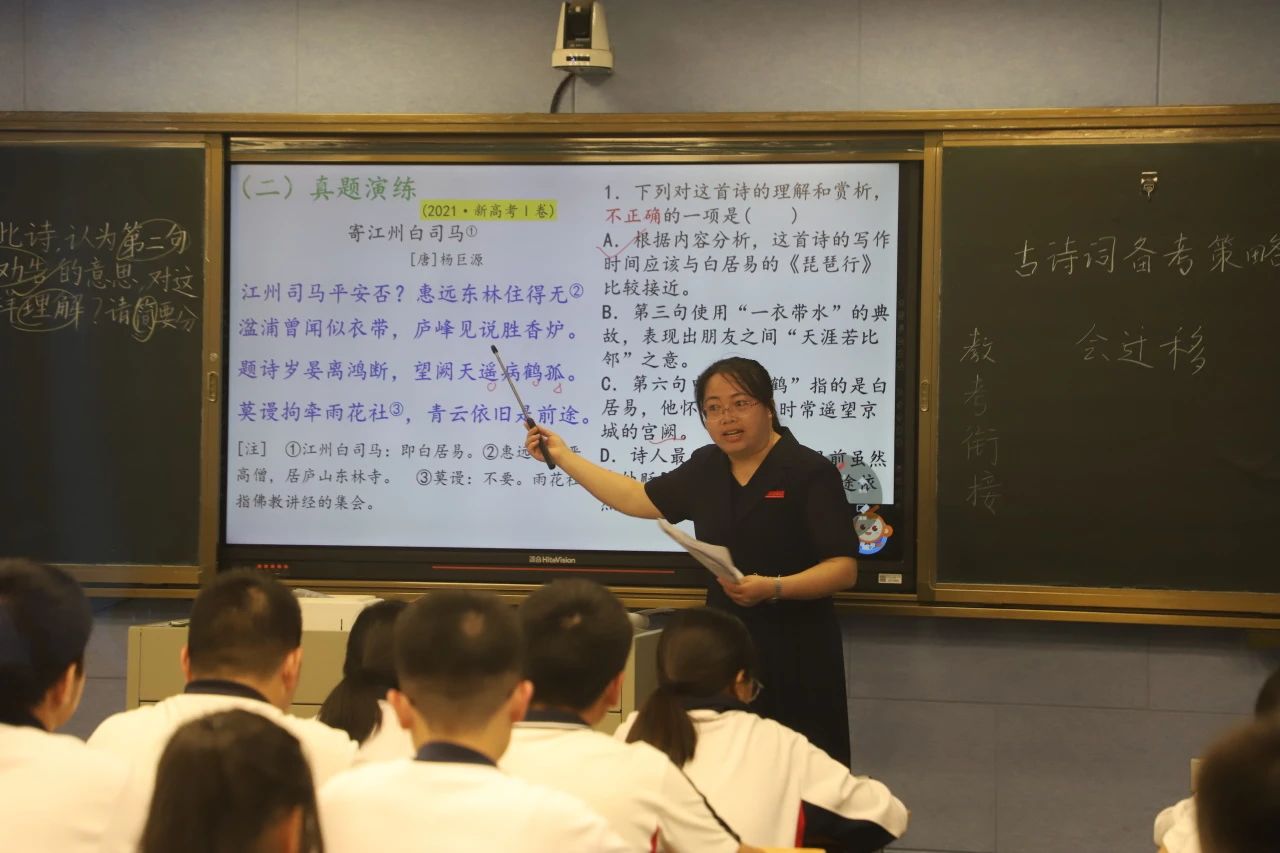 此诗,认为第二句
劝告的意思,对这
样理解?请简要分
(二)真题演练
(2021·新高考Ⅰ卷)
寄江州白司马①
[唐]杨巨源
江州司马平安否?惠远东林住得无②
湓浦曾闻似衣带,庐峰见说胜香炉。
题诗岁晏离鸿断,望阙天遥病鹤孤。
莫谩拘牵雨花社③,青云依旧是前途。
[注] ①江州白司马:即白居易。②惠远
高僧,居庐山东林寺。 ③莫谩:不要。雨花社
指佛教讲经的集会。
1. 下列对这首诗的理解和赏析,
不正确的一项是( )
A. 根据内容分析,这首诗的写作
时间应该与白居易的《琵琶行》
比较接近。
B. 第三句使用“一衣带水”的典
故,表现出朋友之间“天涯若比
邻”之意。
C. 第六句 鹤”指的是白
居易,他怀 时常遥望京
城的宫阙。
D. 诗人最 前虽然
途依
适合HiteVision
古诗词备考策略
会迁移
教考衔接